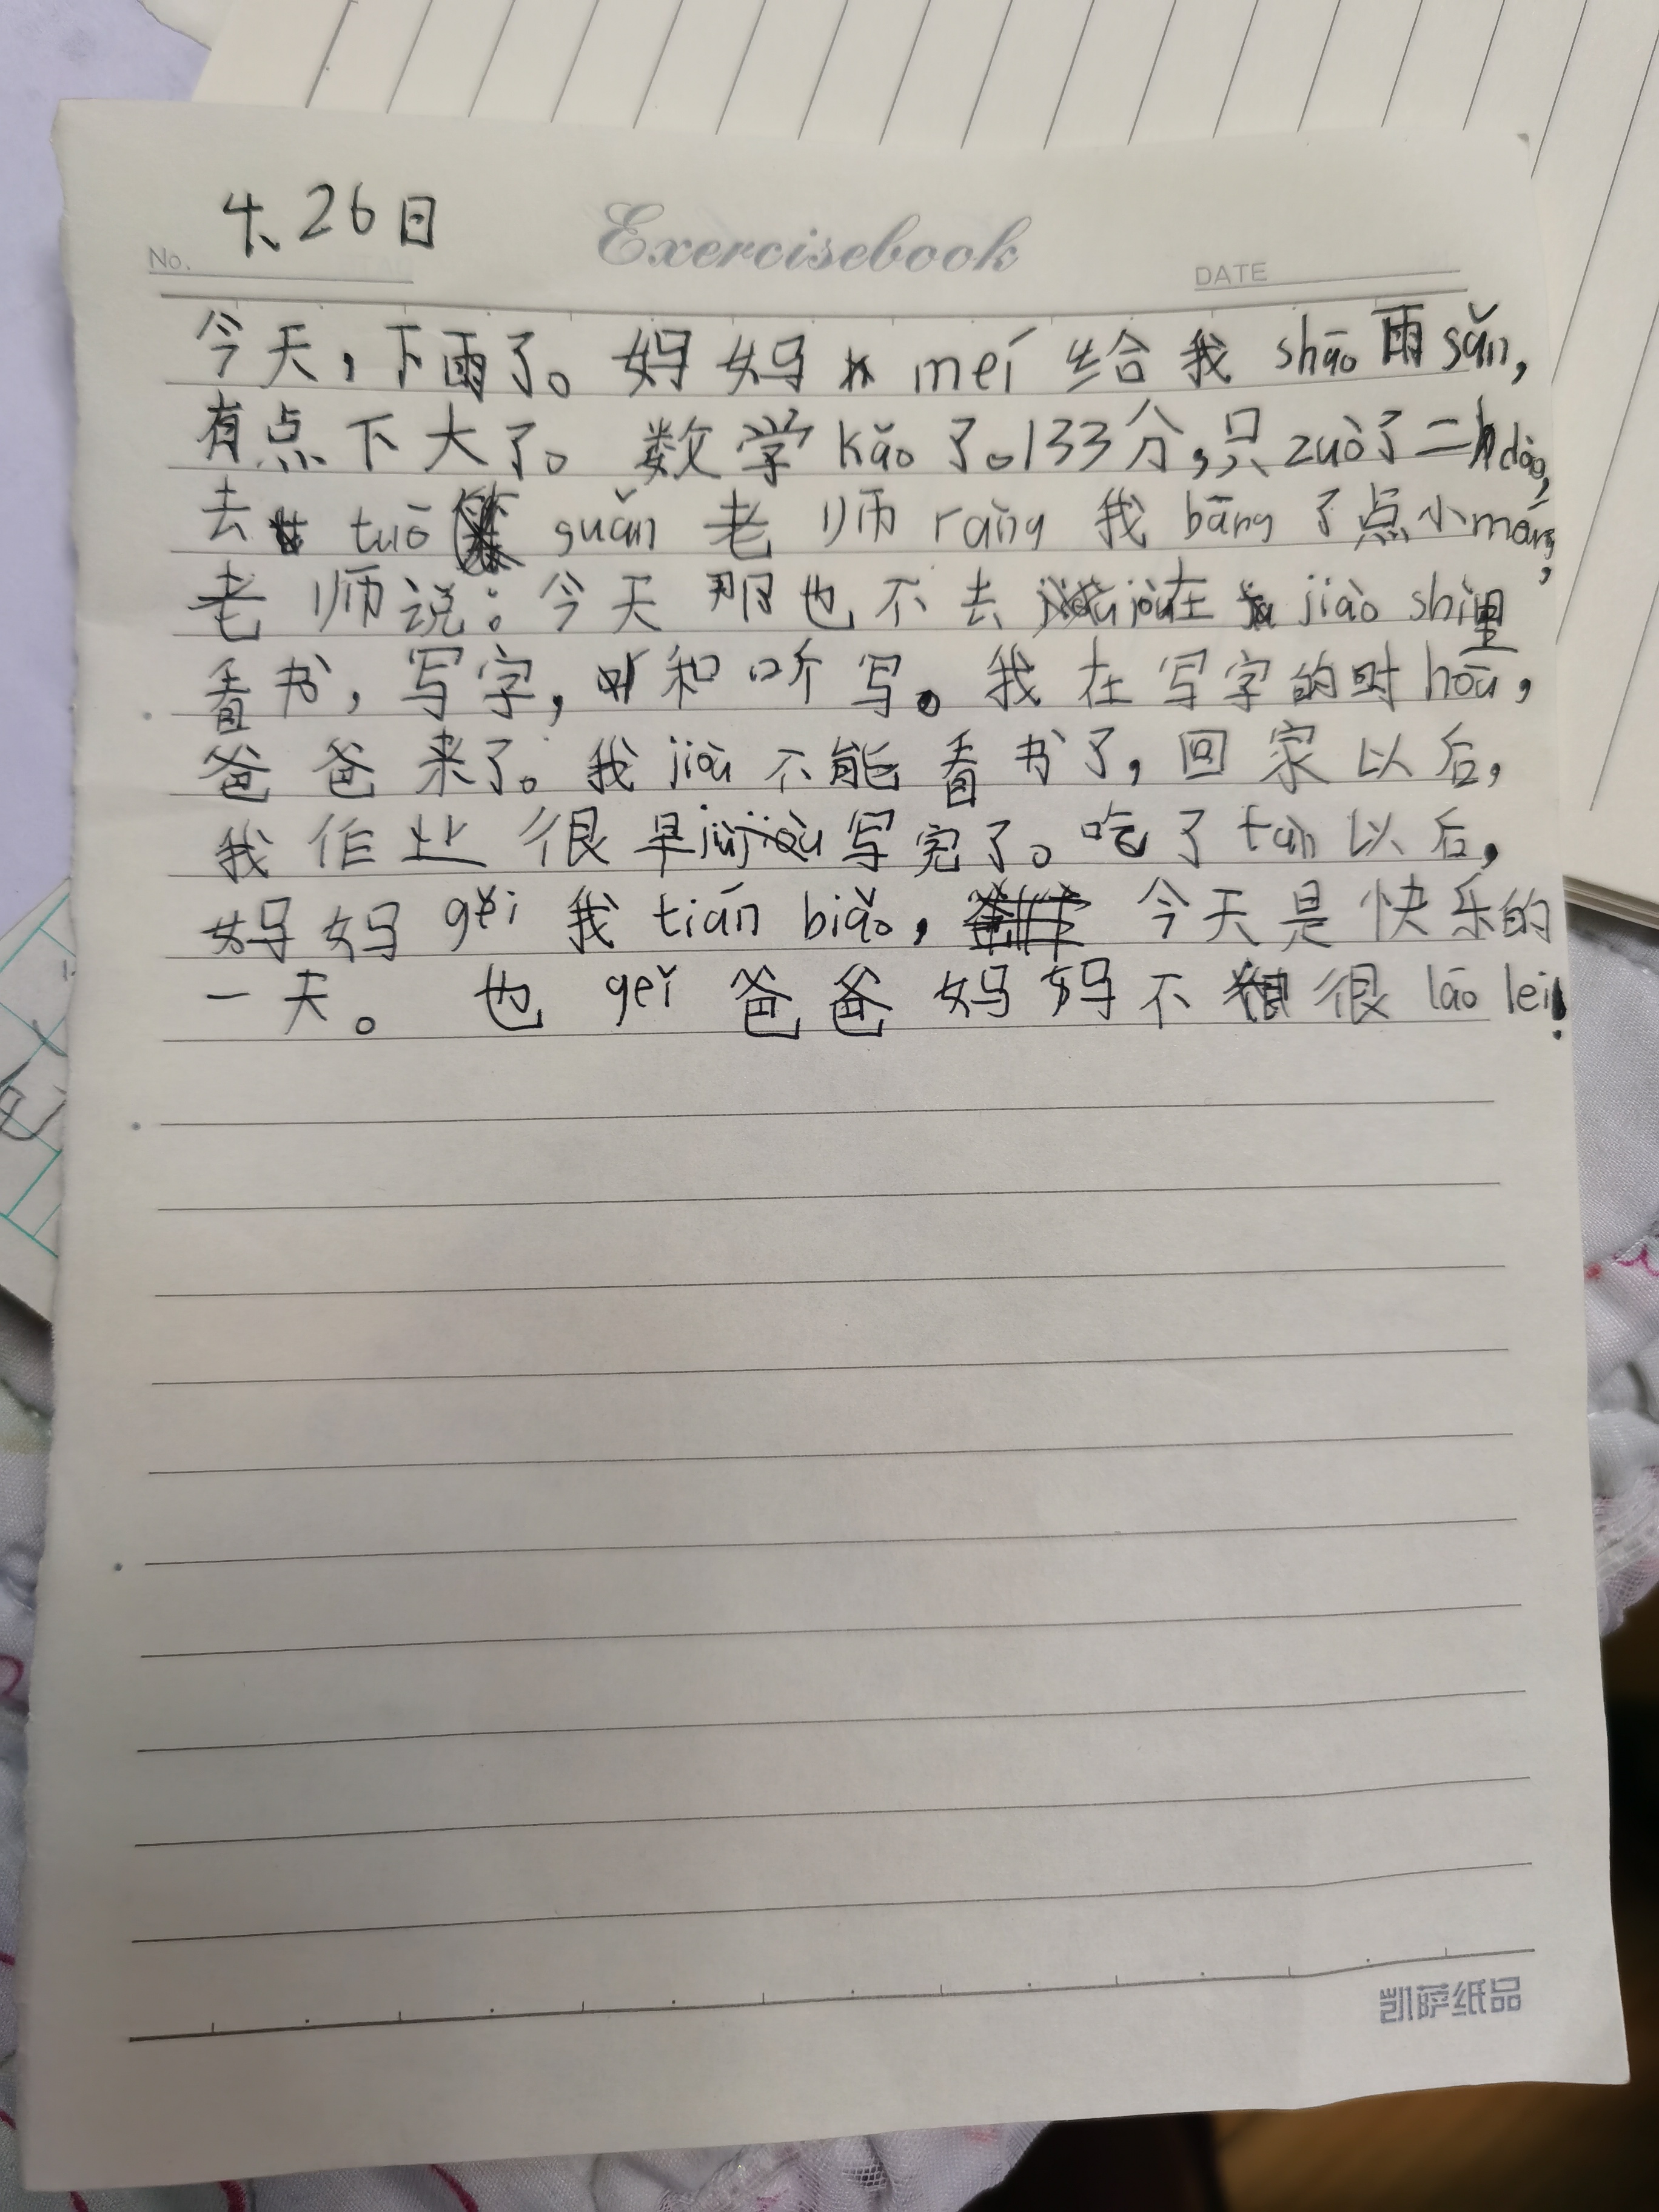 4、26日
Exercisebook
No.
DATE
今天，下雨了。妈妈 meí 给我 shāo 雨 sǎn，
有点下大了。数学 kǎo 了。133分，只 zuò 了二 dào，
去 tuō guǎn 老师 ràng 我 bāng 了点小 máng，
老师说：今天那也不去 jiù 在 jiào shì 里
看书，写字，和听写。我在写字的时 hoū，
爸爸来了。我 jiòu 不能看书了，回家以后，
我作业很早 jiù 写完了。吃了 fàn 以后，
妈妈 gěi 我 tián biǎo，今天是快乐的
一天。 也 geǐ 爸爸妈妈不很 lāo lei！
凯萨纸品